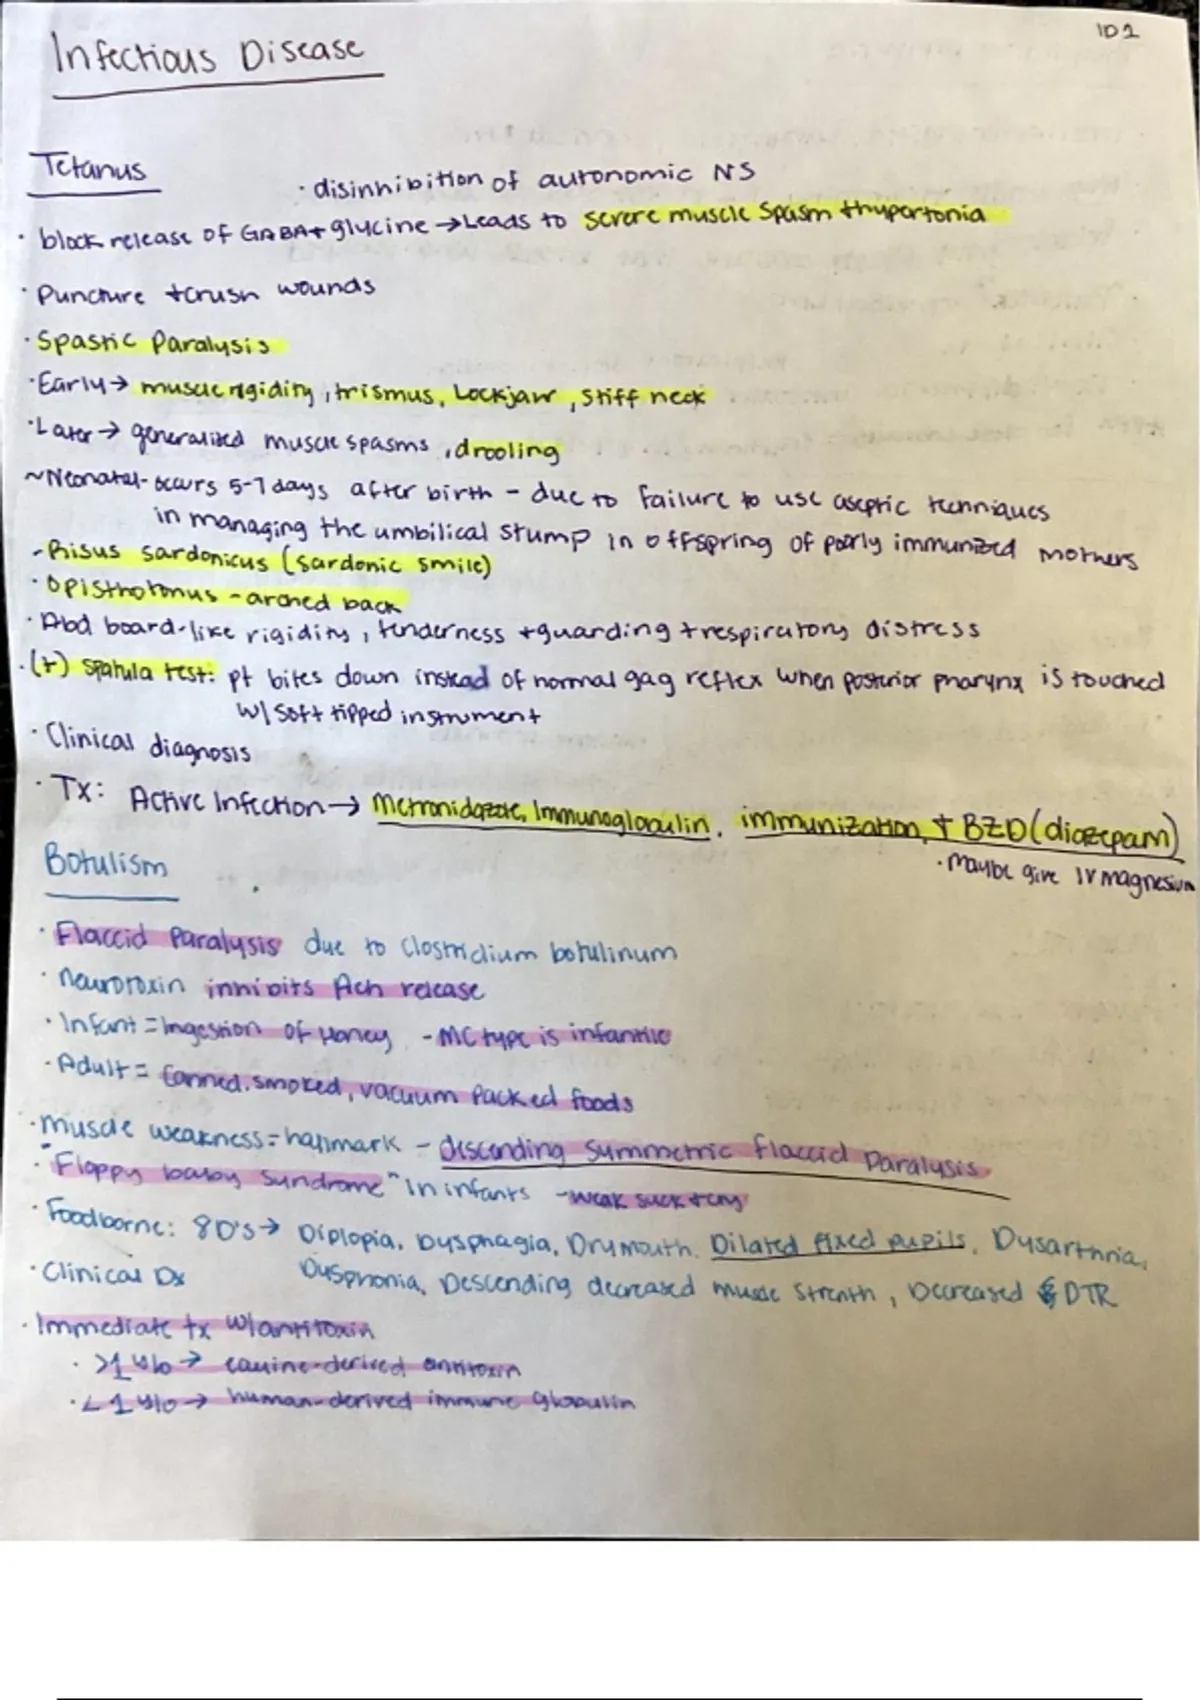 ID 1
Infectious Disease
Tetanus
· disinhibition of autonomic NS
· block release of GABA + glycine → Leads to severe muscle spasm + hypertonia
· Puncture + crush wounds
· Spastic Paralysis
· Early → muscle rigidity, trismus, Lockjaw, stiff neck
· Later → generalized muscle spasms, drooling
~Neonatal - occurs 5-7 days after birth - due to failure to use aseptic techniques
in managing the umbilical stump in offspring of poorly immunized mothers
- Risus sardonicus (sardonic smile)
· Opisthotonus - arched back
· Abd board-like rigidity, tenderness + guarding + respiratory distress
· (+) spatula test: pt bites down instead of normal gag reflex when posterior pharynx is touched
w/ soft tipped instrument
· Clinical diagnosis
· Tx: Active Infection → Metronidazole, Immunoglobulin, immunization, + BZD (diazepam)
· maybe give IV magnesium
Botulism
· Flaccid Paralysis due to Clostridium botulinum
· neurotoxin inhibits Ach release
· Infant = Ingestion of Honey - MC type is infantile
· Adult = Canned, smoked, vacuum packed foods
· muscle weakness = hallmark - descending symmetric flaccid paralysis
· "Floppy baby syndrome" in infants - weak suck + cry
· Foodborne: 8D's → Diplopia, Dysphagia, Dry mouth, Dilated fixed pupils, Dysarthria,
Dysphonia, Descending decreased muscle strenth, Decreased DTR
· Clinical Dx
· Immediate tx w/ antitoxin
· >1 y/o → equine-derived antitoxin
· <1 y/o → human-derived immune globulin